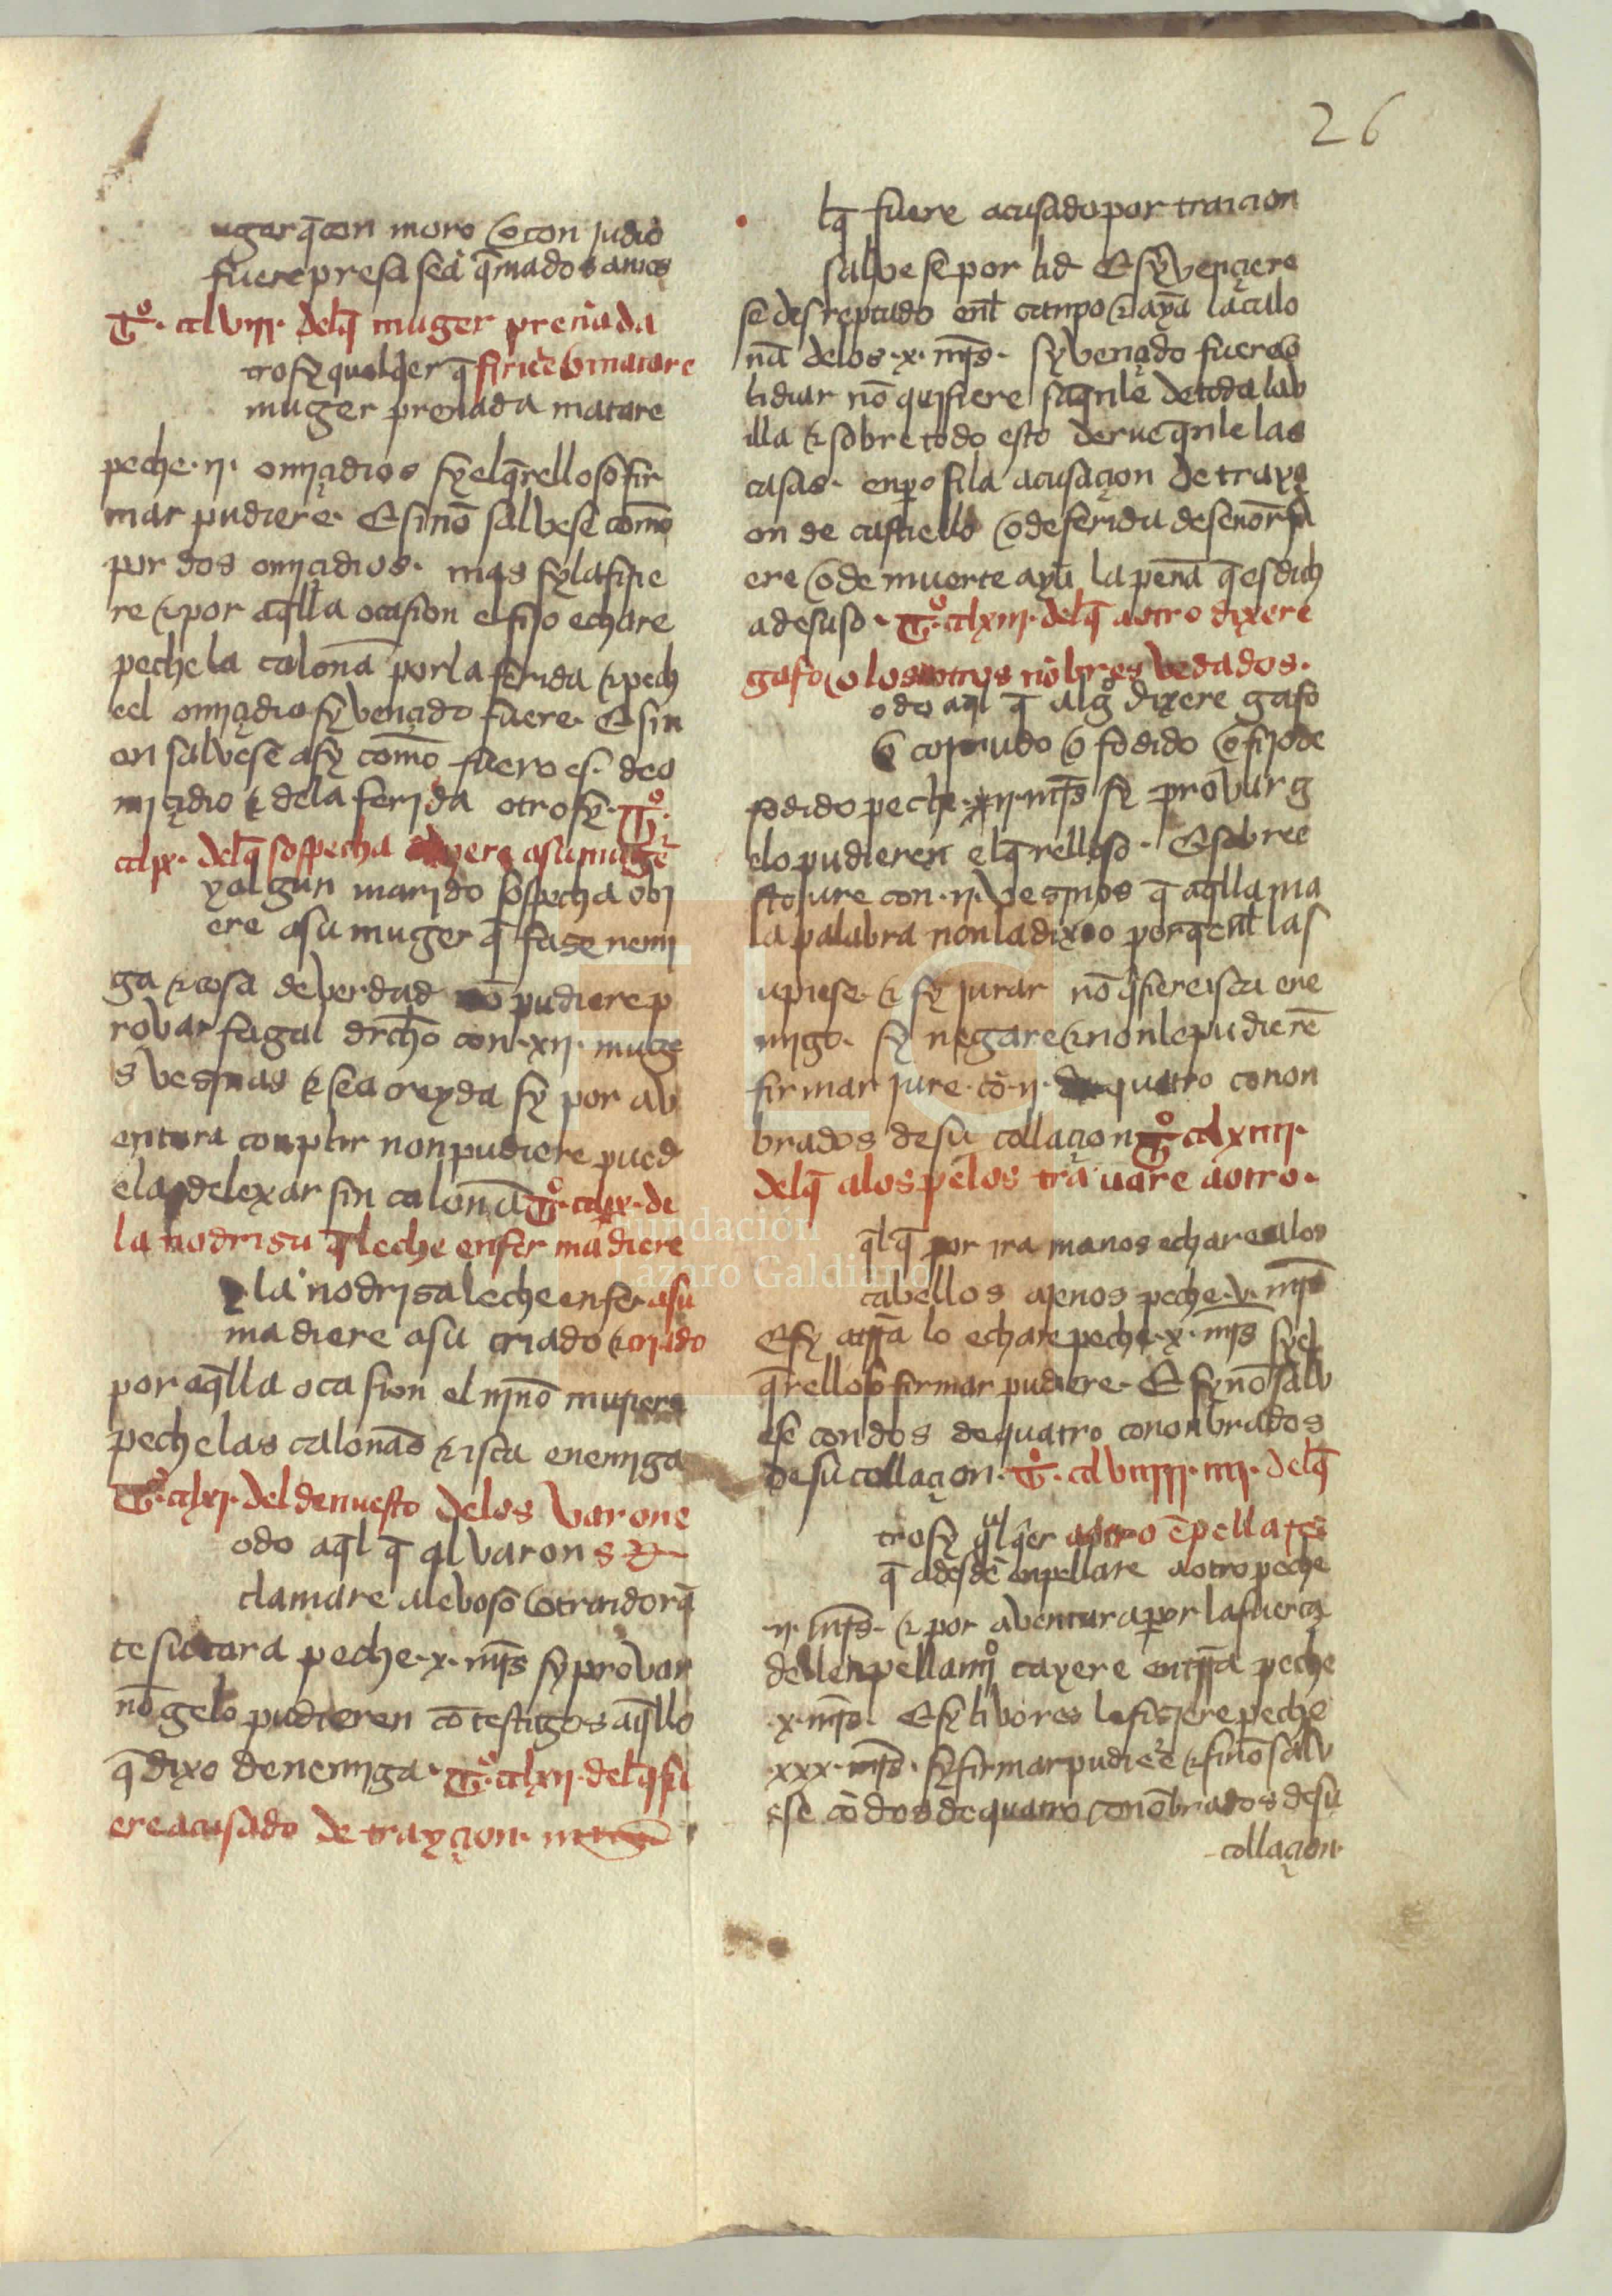 26
uger q̄ con moro o con judio
fuere presa sea q̄mados amos
Tº. cclviii. delq̄ muger preñada
trosy qualq̄er q̄ firiere o matare
muger preñada matare
peche .ii. omiçidios sy elq̄relloso fir
mar pudiere. E si nō salvese como
por dos omiçidios. mas sy la firie
re & por aq̄lla ocasion el fijo echare
peche la calonā por la ferida & pech
eel omiçidio sy vençido fuere. E si n
on salvese asy como fuero es. deo
miçidio & dela ferida otrosy. Tº.
cclix. delq̄ sospecha oviere a su muge
y algun marido sospecha obi
ere asu muger q̄ fase nemi
ga & cosa de verdad nō pudiere p
rovar fagal drcho con .xii. muge
s vesinas & sea creyda sy por av
entura conplir non pudiere pued
ela delexar sin calonā Tº. cclx. de
la nodrisa q̄ leche enferma diere
y la nodrisa leche enfer asu
ma diere asu criado & criado
por aq̄lla ocasion el niño muriere
peche las calonās & isca enemiga
Tº. cclxi. del denuesto delos varone
odo aq̄l q̄ al varon s
clamare alevoso o traidor q̄
te su cara peche .x. mr̄s sy provar
nō gelo pudieren cō testigos aq̄llo
q̄ dixo denemiga. Tº. cclxii. delq̄ fu
ere acusado de trayçion.
lq̄ fuere acusado por traicion
salvese por lid E sy vençiere
se desreptado enl canpo & aya la calo
nā delos .x. mr̄s. sy vençido fuere o
lidiar nō quisiere saq̄nle de toda la v
illa & sobre todo esto derueq̄nle las
casas. enp̄o si la acusaçion de trayçi
on de castiello o de ferida de señor fu
ere o de muerte aya la penā q̄ es dich
a de suso. Tº. cclxiii. delq̄ a otro dixere
gafo o los otros nōbres vedados.
odo aq̄l q̄ a algº dixere gafo
o cornudo o fodido o fijo de
fodido peche .ii. mr̄s sy provar g
elo pudieren elq̄relloso. E sobre e
sto jure con .ii. vesinos q̄ aq̄lla ma
la palabra non la dixo porq̄ enl la s
upiese. & sy jurar nō q̄siere isca ene
migo. sy negare & non le pudierē
firmar jure. cō .ii. de quatro conon
brados de su collaçion Tº. cclxiiii.
delq̄ alos pelos travare a otro.
q̄lq̄ por ira manos echare alos
cabellos ajenos peche .v. mr̄s
E sy a trr̄a lo echare peche .x. mr̄s sy el
q̄relloso firmar pudiere. E sy nō salv
ese con dos de quatro cononbrados
de su collaçion. Tº. delq̄
trosy q̄lq̄er a otro ēpellare
q̄ adesdē enpellare a otro peche
.ii. mr̄s. & por aventura por la fuerça
del enpellamiº cayere en trr̄a peche
.x. mr̄s. E sy livores le fiziere peche
xxx. mr̄s. sy firmar pudiere & si nō salv
ese cō dos de quatro conōbrados de su
collaçion.
Fundación
Lázaro Galdiano